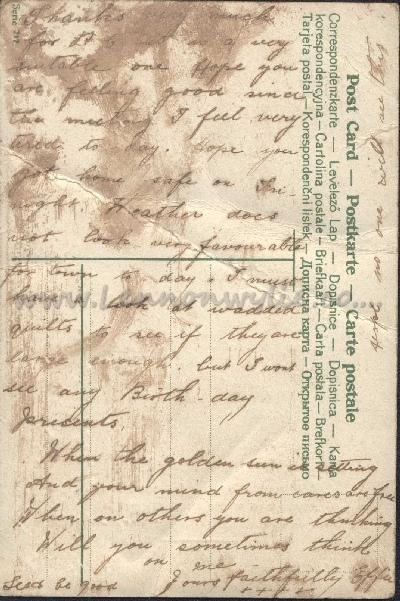 Thanks very much
for P.C. very
suitable one Hope you
are feeling good since
the meeting I feel very
tired to day. Hope you
got home safe on Fri-
night. Weather does
not look very favourable
for town to day. I must
have look at wadded
quilts to see if they are
large enough. but I wont
see any Birth-day
presents.
When the golden sun is setting
And your mind from cares are free
When on others you are thinking
Will you sometimes think
on me
Yours faithfully Effie
be good
Post Card — Postkarte — Carte postale
Correspondenzkarte — Levelező Lap — Dopisnice — Dopisnica — Karta
korespondencyjna — Cartolina postale — Briefkaart — Carta postala — Brefkort —
Tarjeta postal — Korespondenční lístek — Дописна карта — Открытое письмо
Serie